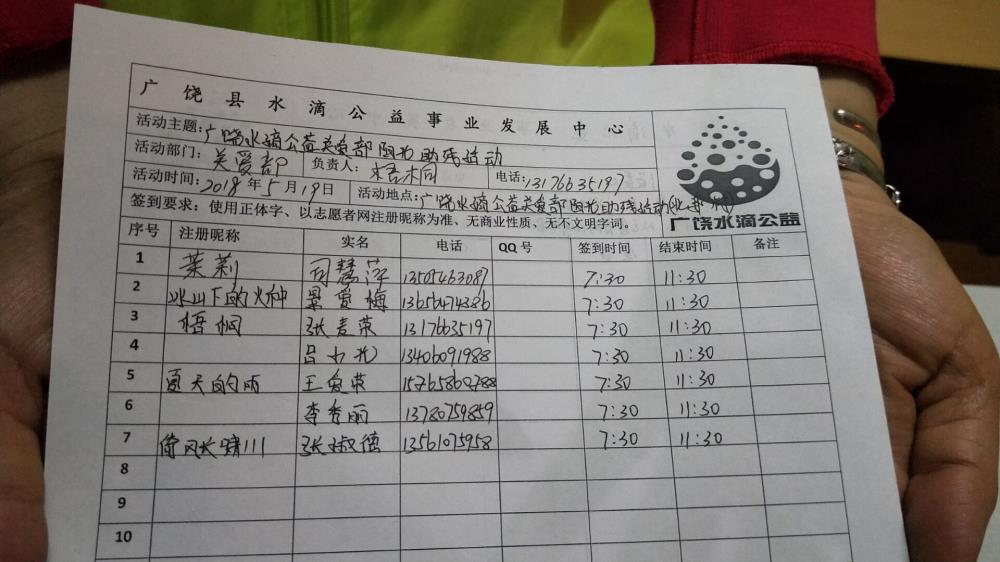 广饶县水滴公益事业发展中心
活动主题:广饶水滴公益关爱部阳光助残活动
活动部门:关爱部 负责人:梧桐 电话:13176635197
活动时间:2018年5月19日 活动地点:广饶水滴公益关爱部阳光助残活动
签到要求:使用正体字、以志愿者网注册昵称为准、无商业性质、无不文明字词。
广饶水滴公益
序号 注册昵称 实名 电话 QQ号 签到时间 结束时间 备注
1 茉莉 司慧萍 13505463089 7:30 11:30
2 冰山下的火种 爱梅 13654774386 7:30 11:30
3 梧桐 张麦荣 13176635197 7:30 11:30
4 13406091988 7:30 11:30
5 夏天的雨 王爱荣 7:30 11:30
6 李秀丽 13780759859 7:30 11:30
7 倚风长晴川 张淑德 13561075958 7:30 11:30
8
9
10